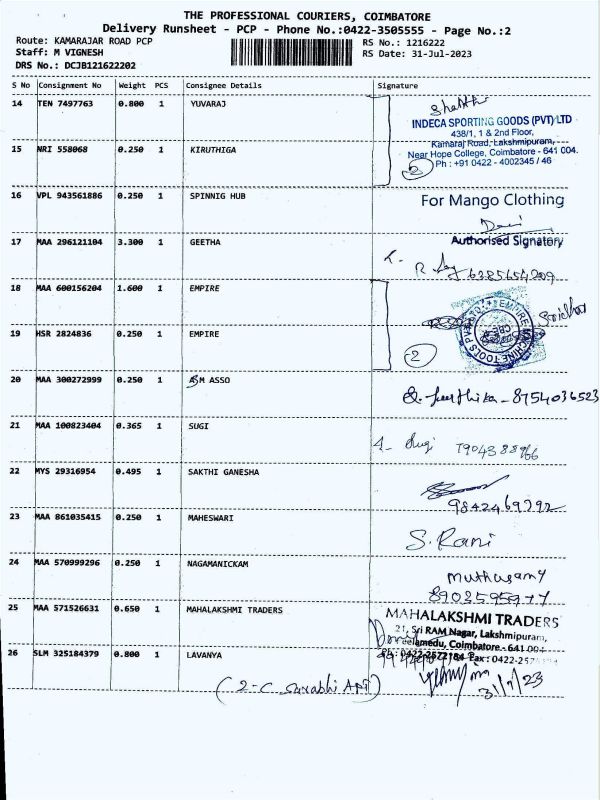 THE PROFESSIONAL COURIERS, COIMBATORE
Delivery Runsheet - PCP - Phone No.:0422-3505555 - Page No.:2
Route: KAMARAJAR ROAD PCP
RS No.: 1216222
Staff: M VIGNESH
RS Date: 31-Jul-2023
DRS No.: DCJB121622202
S No Consignment No Weight PCS Consignee Details Signature
14 TEN 7497763 0.800 1 YUVARAJ
INDECA SPORTING GOODS (PVT) LTD
438/1, 1 & 2nd Floor,
Kamaraj Road, Lakshmipuram,
15 NRI 558068 0.250 1 KIRUTHIGA
Near Hope College, Coimbatore - 641 004.
Ph : +91 0422 - 4002345 / 46
2
16 VPL 943561886 0.250 1 SPINNIG HUB
For Mango Clothing
Authorised Signatory
17 MAA 296121104 3.300 1 GEETHA
18 MAA 600156204 1.600 1 EMPIRE
EMPIRE MACHINE TOOLS
CBE
Sridhar
19 HSR 2824836 0.250 1 EMPIRE
2
20 MAA 300272999 0.250 1 ASM ASSO
8754036523
21 MAA 100823404 0.365 1 SUGI
Sugi
22 MYS 29316954 0.495 1 SAKTHI GANESHA
9842469792
23 MAA 861035415 0.250 1 MAHESWARI
S. Rani
24 MAA 570999296 0.250 1 NAGAMANICKAM
Muthusamy
25 MAA 571526631 0.650 1 MAHALAKSHMI TRADERS
MAHALAKSHMI TRADERS
21, Sri RAM Nagar, Lakshmipuram,
Peelamedu, Coimbatore - 641 004
26 SLM 325184379 0.800 1 LAVANYA
(2-C Surabhi Apt)
31/7/23